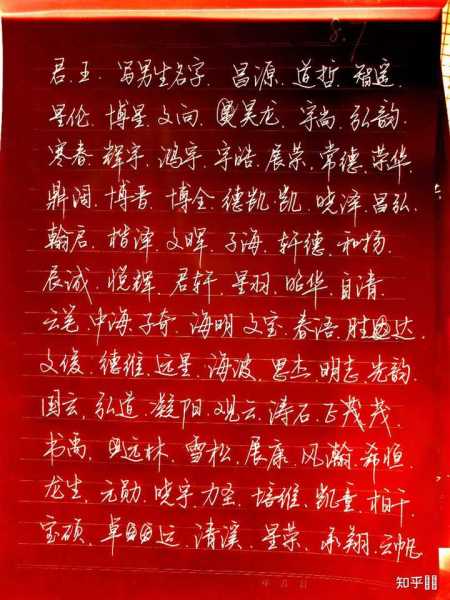 8.1
君.王. 写男生名字. 昌源. 道哲. 智遥.
昱伦. 博星. 文向. 昊龙. 宇尚. 弘韵.
寒春. 辉宇. 鸿宇. 宇皓. 展荣. 常德. 荣华.
鼎阔. 博晋. 博全. 德凯. 凯. 晓泽. 昌弘.
翰君. 楷泽. 文晖. 子海. 轩德. 和扬.
辰诚. 悦辉. 君轩. 星羽. 昭华. 自清.
云笔. 中海. 子奇. 海明. 文宝. 春浯. 胜达.
文俊. 德维. 远星. 海波. 思杰. 明志. 先韵.
国玄. 弘道. 凝阳. 观云. 涛石. 正茂茂.
书禹. 远林. 雪松. 展康. 风瀚. 希恒.
龙生. 元勋. 晓宇. 力圣. 培维. 凯重. 柏千.
宝硕. 卓远. 清溪. 星荣. 承翔. 云帆.
年 月 日
知乎